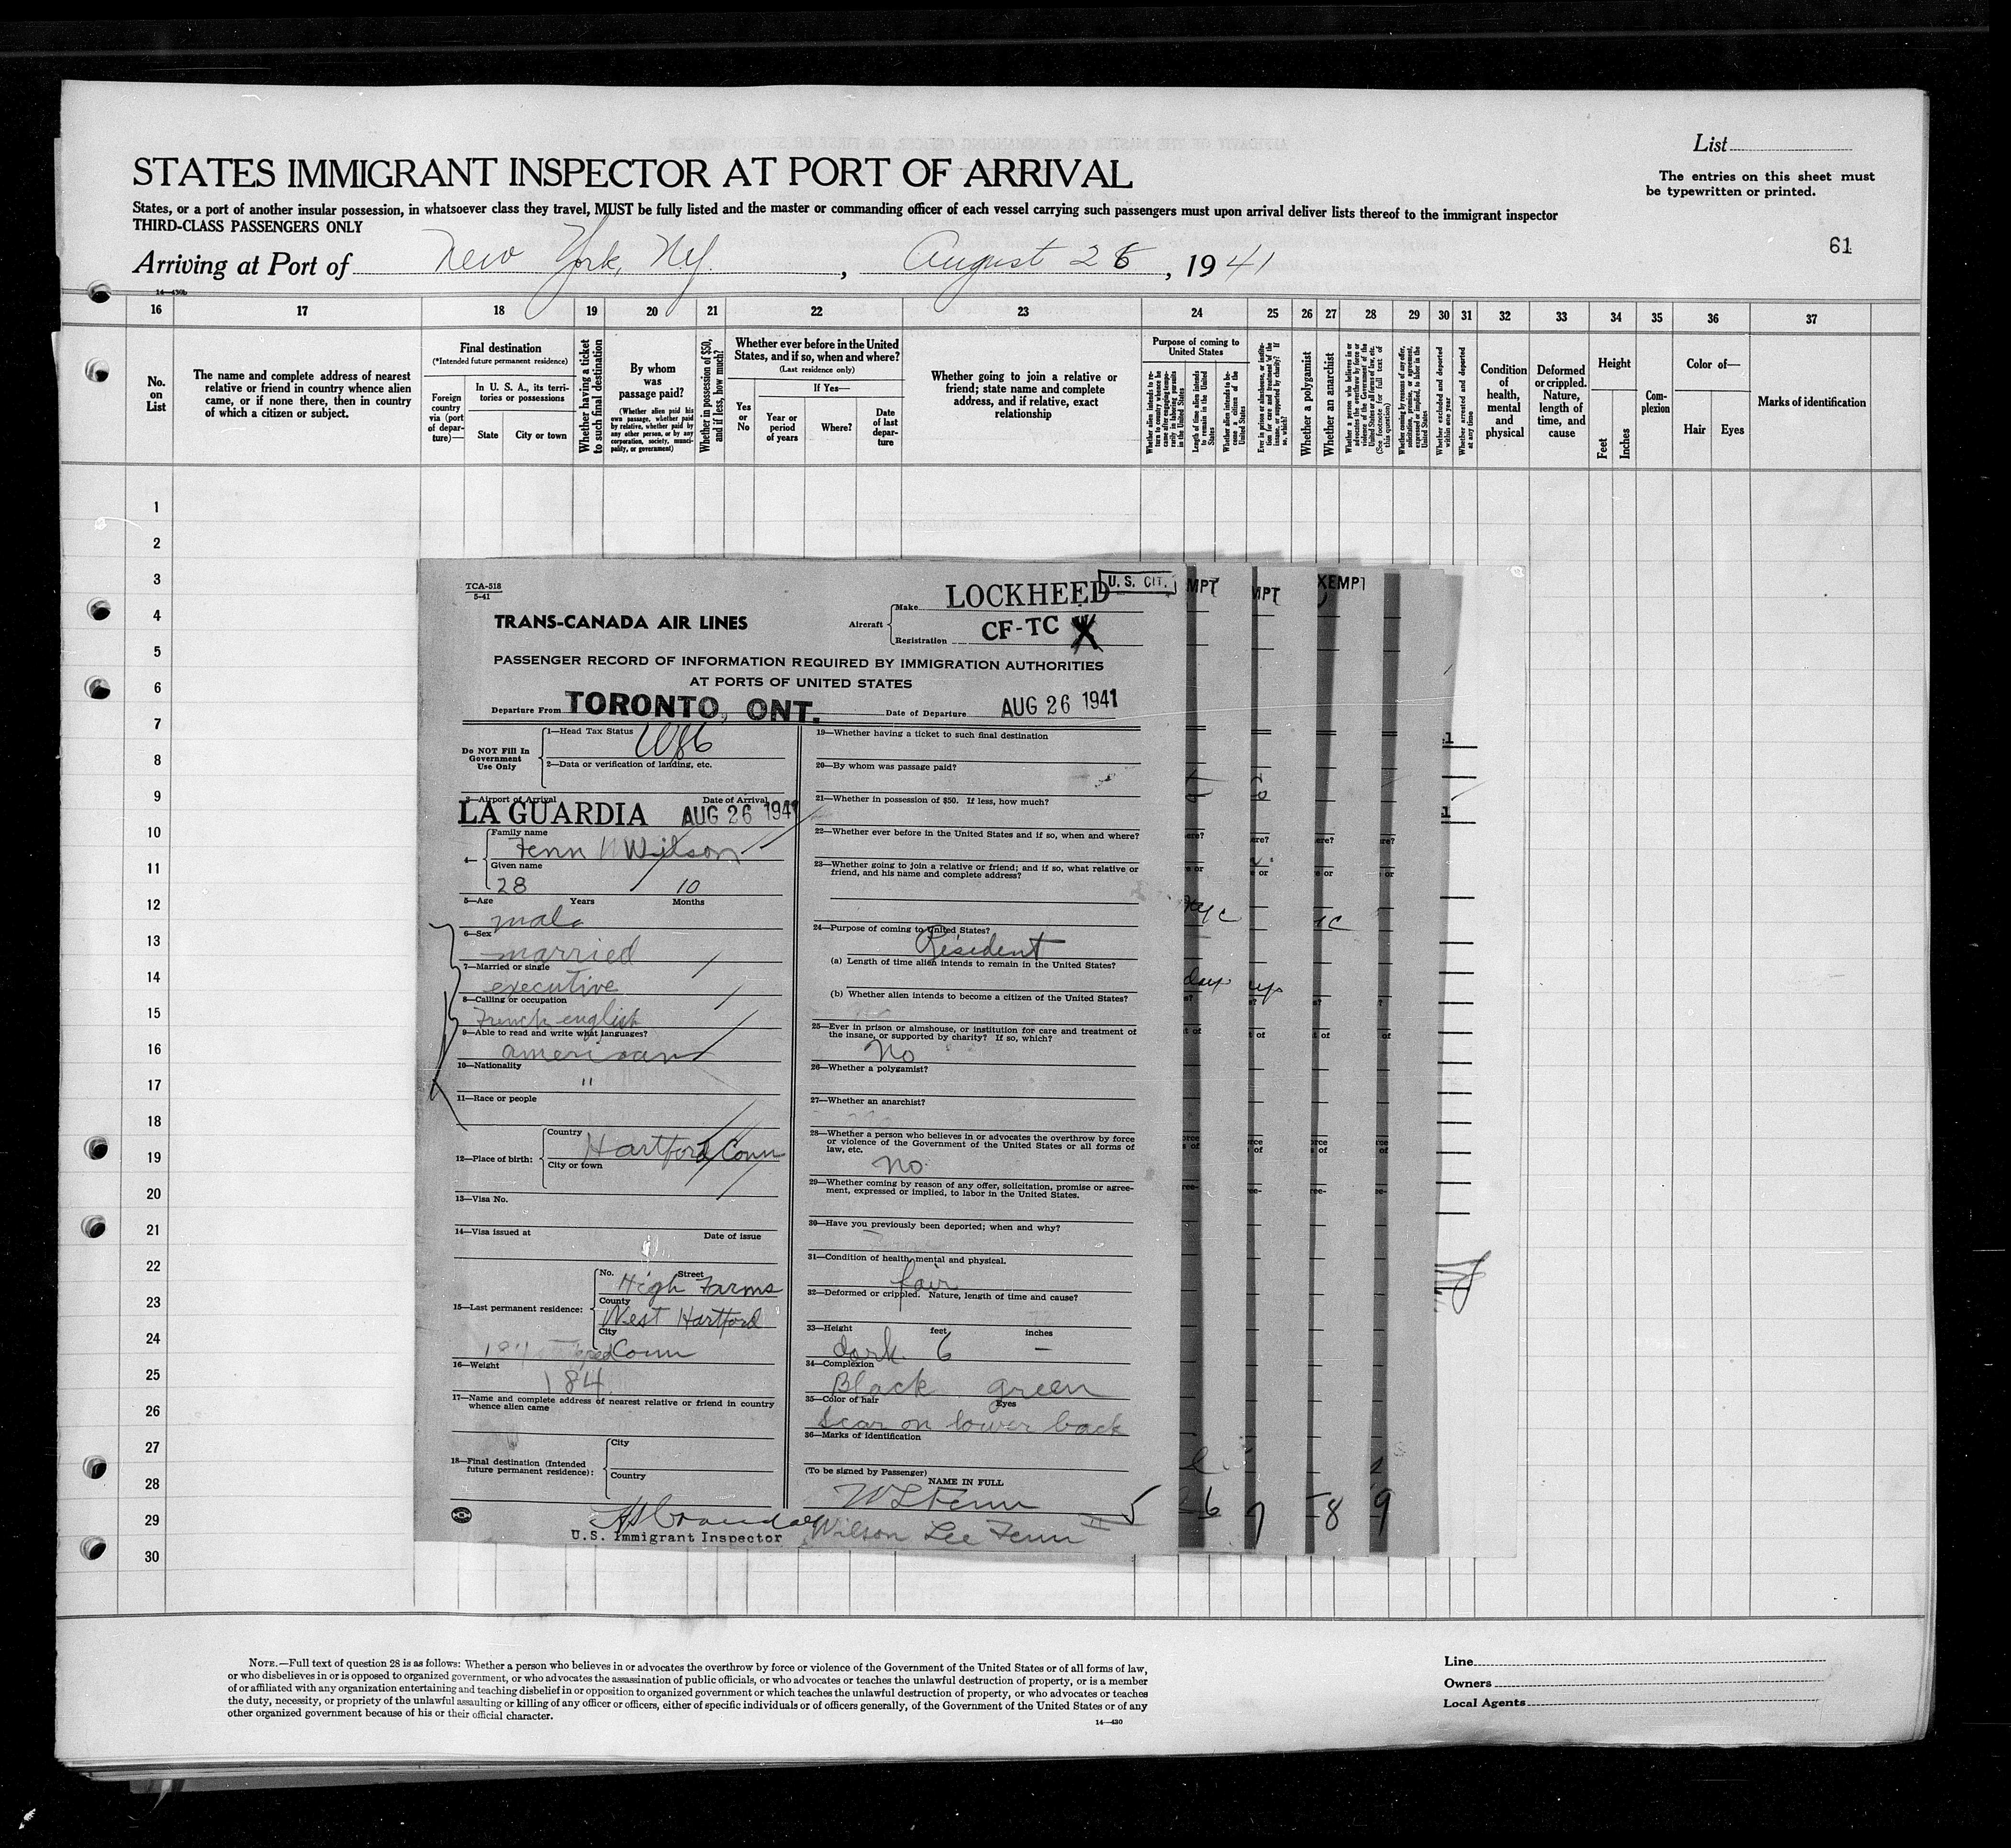 List
The entries on this sheet must
be typewritten or printed.
STATES IMMIGRANT INSPECTOR AT PORT OF ARRIVAL
States, or a port of another insular possession, in whatsoever class they travel, MUST be fully listed and the master or commanding officer of each vessel carrying such passengers must upon arrival deliver lists thereof to the immigrant inspector
THIRD-CLASS PASSENGERS ONLY
61
Arriving at Port of New York, N.Y., August 26, 1941
14—430b
16 17 18 19 20 21 22 23 24 25 26 27 28 29 30 31 32 33 34 35 36 37
No. on List
The name and complete address of nearest relative or friend in country whence alien came, or if none there, then in country of which a citizen or subject.
Final destination
(*Intended future permanent residence)
Foreign country via (port of departure)—
In U. S. A., its territories or possessions
State
City or town
Whether having a ticket to such final destination
By whom was passage paid?
(Whether alien paid his own passage, whether paid by relative, whether paid by any other person, or by any corporation, society, municipality, or government)
Whether in possession of $50, and if less, how much?
Whether ever before in the United States, and if so, when and where?
(Last residence only)
Yes or No
If Yes—
Year or period of years
Where?
Date of last departure
Whether going to join a relative or friend; state name and complete address, and if relative, exact relationship
Purpose of coming to United States
Whether alien intends to return to country whence he came after engaging temporarily in laboring pursuits in the United States
Length of time alien intends to remain in the United States
Whether alien intends to become a citizen of the United States
Ever in prison or almshouse, or institution for care and treatment of the insane, or supported by charity? If so, which?
Whether a polygamist
Whether an anarchist
Whether a person who believes in or advocates the overthrow by force or violence of the Government of the United States or all forms of law, etc. (See footnote for full text of this question)
Whether coming by reason of any offer, solicitation, promise, or agreement, expressed or implied, to labor in the United States
Whether excluded and deported within one year
Whether arrested and deported at any time
Condition of health, mental and physical
Deformed or crippled. Nature, length of time, and cause
Height
Feet
Inches
Complexion
Color of—
Hair
Eyes
Marks of identification
1
2
3
4
5
6
7
8
9
10
11
12
13
14
15
16
17
18
19
20
21
22
23
24
25
26
27
28
29
30
TCA-518
5-41
TRANS-CANADA AIR LINES
Aircraft
Make LOCKHEED
U. S. CIT.
Registration CF-TC
PASSENGER RECORD OF INFORMATION REQUIRED BY IMMIGRATION AUTHORITIES
AT PORTS OF UNITED STATES
Departure From TORONTO, ONT. Date of Departure AUG 26 1941
Do NOT Fill In Government Use Only
1—Head Tax Status
2—Data or verification of landing, etc.
3—Airport of Arrival Date of Arrival
LA GUARDIA AUG 26 1941
4—
Family name
Fenn Wilson
Given name
28 10
5—Age Years Months
male
6—Sex
married
7—Married or single
executive
8—Calling or occupation
French english
9—Able to read and write what languages?
american
10—Nationality
"
11—Race or people
12—Place of birth:
Country
Hartford Conn
City or town
13—Visa No.
14—Visa issued at Date of issue
15—Last permanent residence:
No. Street
High Farms
County
West Hartford
City
Conn
16—Weight
184
17—Name and complete address of nearest relative or friend in country
whence alien came
18—Final destination (Intended
future permanent residence):
City
Country
U.S. Immigrant Inspector
19—Whether having a ticket to such final destination
20—By whom was passage paid?
21—Whether in possession of $50. If less, how much?
22—Whether ever before in the United States and if so, when and where?
23—Whether going to join a relative or friend; and if so, what relative or
friend, and his name and complete address?
24—Purpose of coming to United States?
Resident
(a) Length of time alien intends to remain in the United States?
(b) Whether alien intends to become a citizen of the United States?
25—Ever in prison or almshouse, or institution for care and treatment of
the insane, or supported by charity? If so, which?
No
26—Whether a polygamist?
27—Whether an anarchist?
28—Whether a person who believes in or advocates the overthrow by force
or violence of the Government of the United States or all forms of
law, etc.
no.
29—Whether coming by reason of any offer, solicitation, promise or agree-
ment, expressed or implied, to labor in the United States.
30—Have you previously been deported; when and why?
31—Condition of health, mental and physical.
fair
32—Deformed or crippled. Nature, length of time and cause?
33—Height feet inches
dark 6 —
34—Complexion
Black green
35—Color of hair Eyes
Scar on lower back
36—Marks of identification
(To be signed by Passenger)
NAME IN FULL
W L Fenn
Wilson Lee Fenn II
5 26 7 8 9
MPT MPT XEMPT
NOTE.—Full text of question 28 is as follows: Whether a person who believes in or advocates the overthrow by force or violence of the Government of the United States or of all forms of law,
or who disbelieves in or is opposed to organized government, or who advocates the assassination of public officials, or who advocates or teaches the unlawful destruction of property, or is a member
of or affiliated with any organization entertaining and teaching disbelief in or opposition to organized government or which teaches the unlawful destruction of property, or who advocates or teaches
the duty, necessity, or propriety of the unlawful assaulting or killing of any officer or officers, either of specific individuals or of officers generally, of the Government of the United States or of any
other organized government because of his or their official character.
14—430
Line
Owners
Local Agents